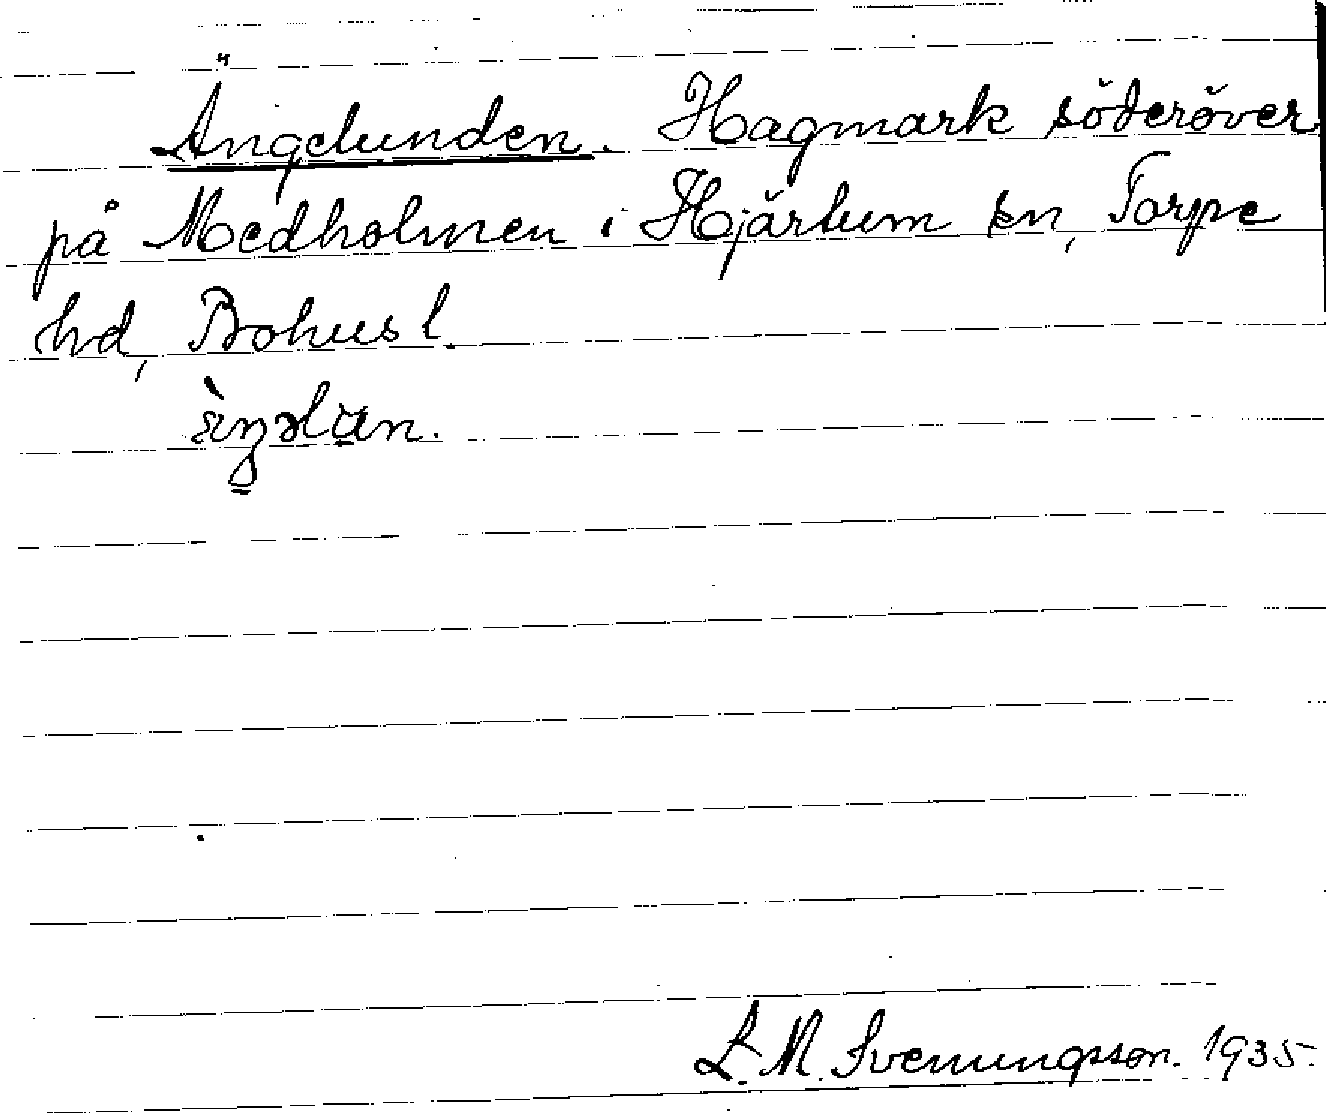 Ängelunden. Hagmark söderöver
på Medholmen i Hjärtum sn, Torpe
hd, Bohusl.
L. M. Svenungsson. 1935.